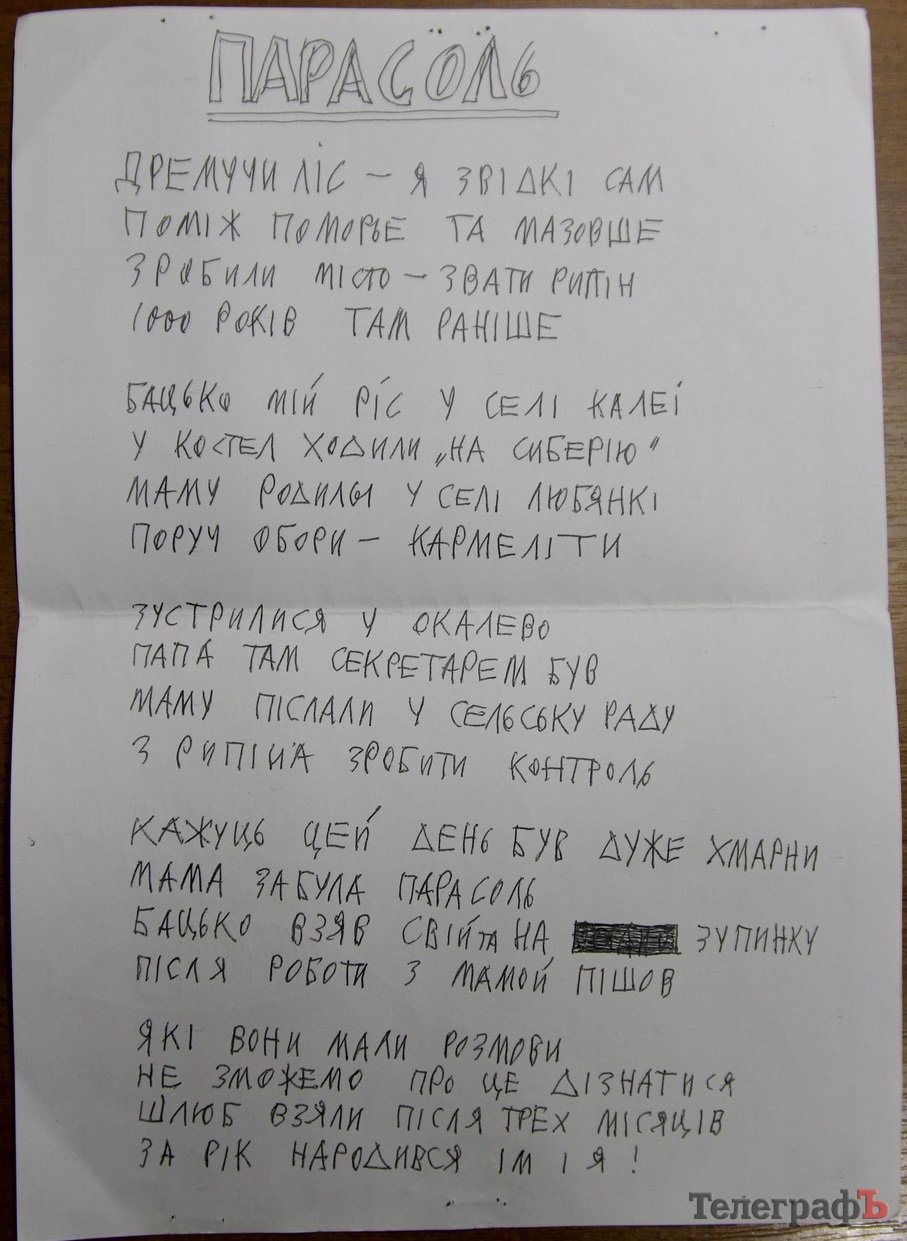 ПАРАСОЛЬ
ДРЕМУЧИ ЛІС – Я ЗВІДКІ САМ
ПОМІЖ ПОМОРЬЕ ТА МАЗОВШЕ
ЗРОБИЛИ МІСТО – ЗВАТИ РИПІН
1000 РОКІВ ТАМ РАНІШЕ
БАЦЬКО МІЙ РІС У СЕЛІ КАЛЕЇ
У КОСТЕЛ ХОДИЛИ „НА СИБЕРІЮ"
МАМУ РОДИЛЫ У СЕЛІ ЛЮБЯНКІ
ПОРУЧ ОБОРИ – КАРМЕЛІТИ
ЗУСТРИЛИСЯ У ОКАЛЕВО
ПАПА ТАМ СЕКРЕТАРЕМ БУВ
МАМУ ПІСЛАЛИ У СЕЛЬСЬКУ РАДУ
З РИПІНА ЗРОБИТИ КОНТРОЛЬ
КАЖУЦЬ ЦЕЙ ДЕНЬ БУВ ДУЖЕ ХМАРНИ
МАМА ЗАБУЛА ПАРАСОЛЬ
БАЦЬКО ВЗЯВ СВІЙ ТА НА ЗУПИНКУ
ПІСЛЯ РОБОТИ З МАМОЙ ПІШОВ
ЯКІ ВОНИ МАЛИ РОЗМОВИ
НЕ ЗМОЖЕМО ПРО ЦЕ ДІЗНАТИСЯ
ШЛЮБ ВЗЯЛИ ПІСЛЯ ТРЕХ МІСЯЦІВ
ЗА РІК НАРОДИВСЯ ІМ І Я !
ТелеграфЪ